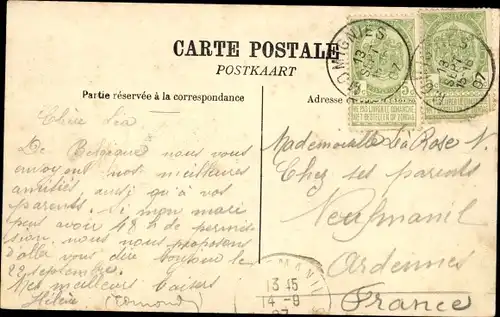 CARTE POSTALE
POSTKAART
Partie réservée à la correspondance
Adresse
MIGNIES
13
SEPT
07
13
SEPT
07
NE PAS LIVRER LE DIMANCHE
NIET BESTELLEN OP ZONDAG
Chère Léa
De Belgique nous vous
envoyons nos meilleures
amitiés, ainsi qu'à vos
parents. Si mon mari
peut avoir 48 h de permis
sion, nous nous proposons
d'aller vous dire bonjour le
22 septembre.
Mes meilleurs baisers
Hélène
Mademoiselle Léa Rose N.
Chez ses parents
Neufmanil
Ardennes
France
MANIL
13 45
14 - 9
07